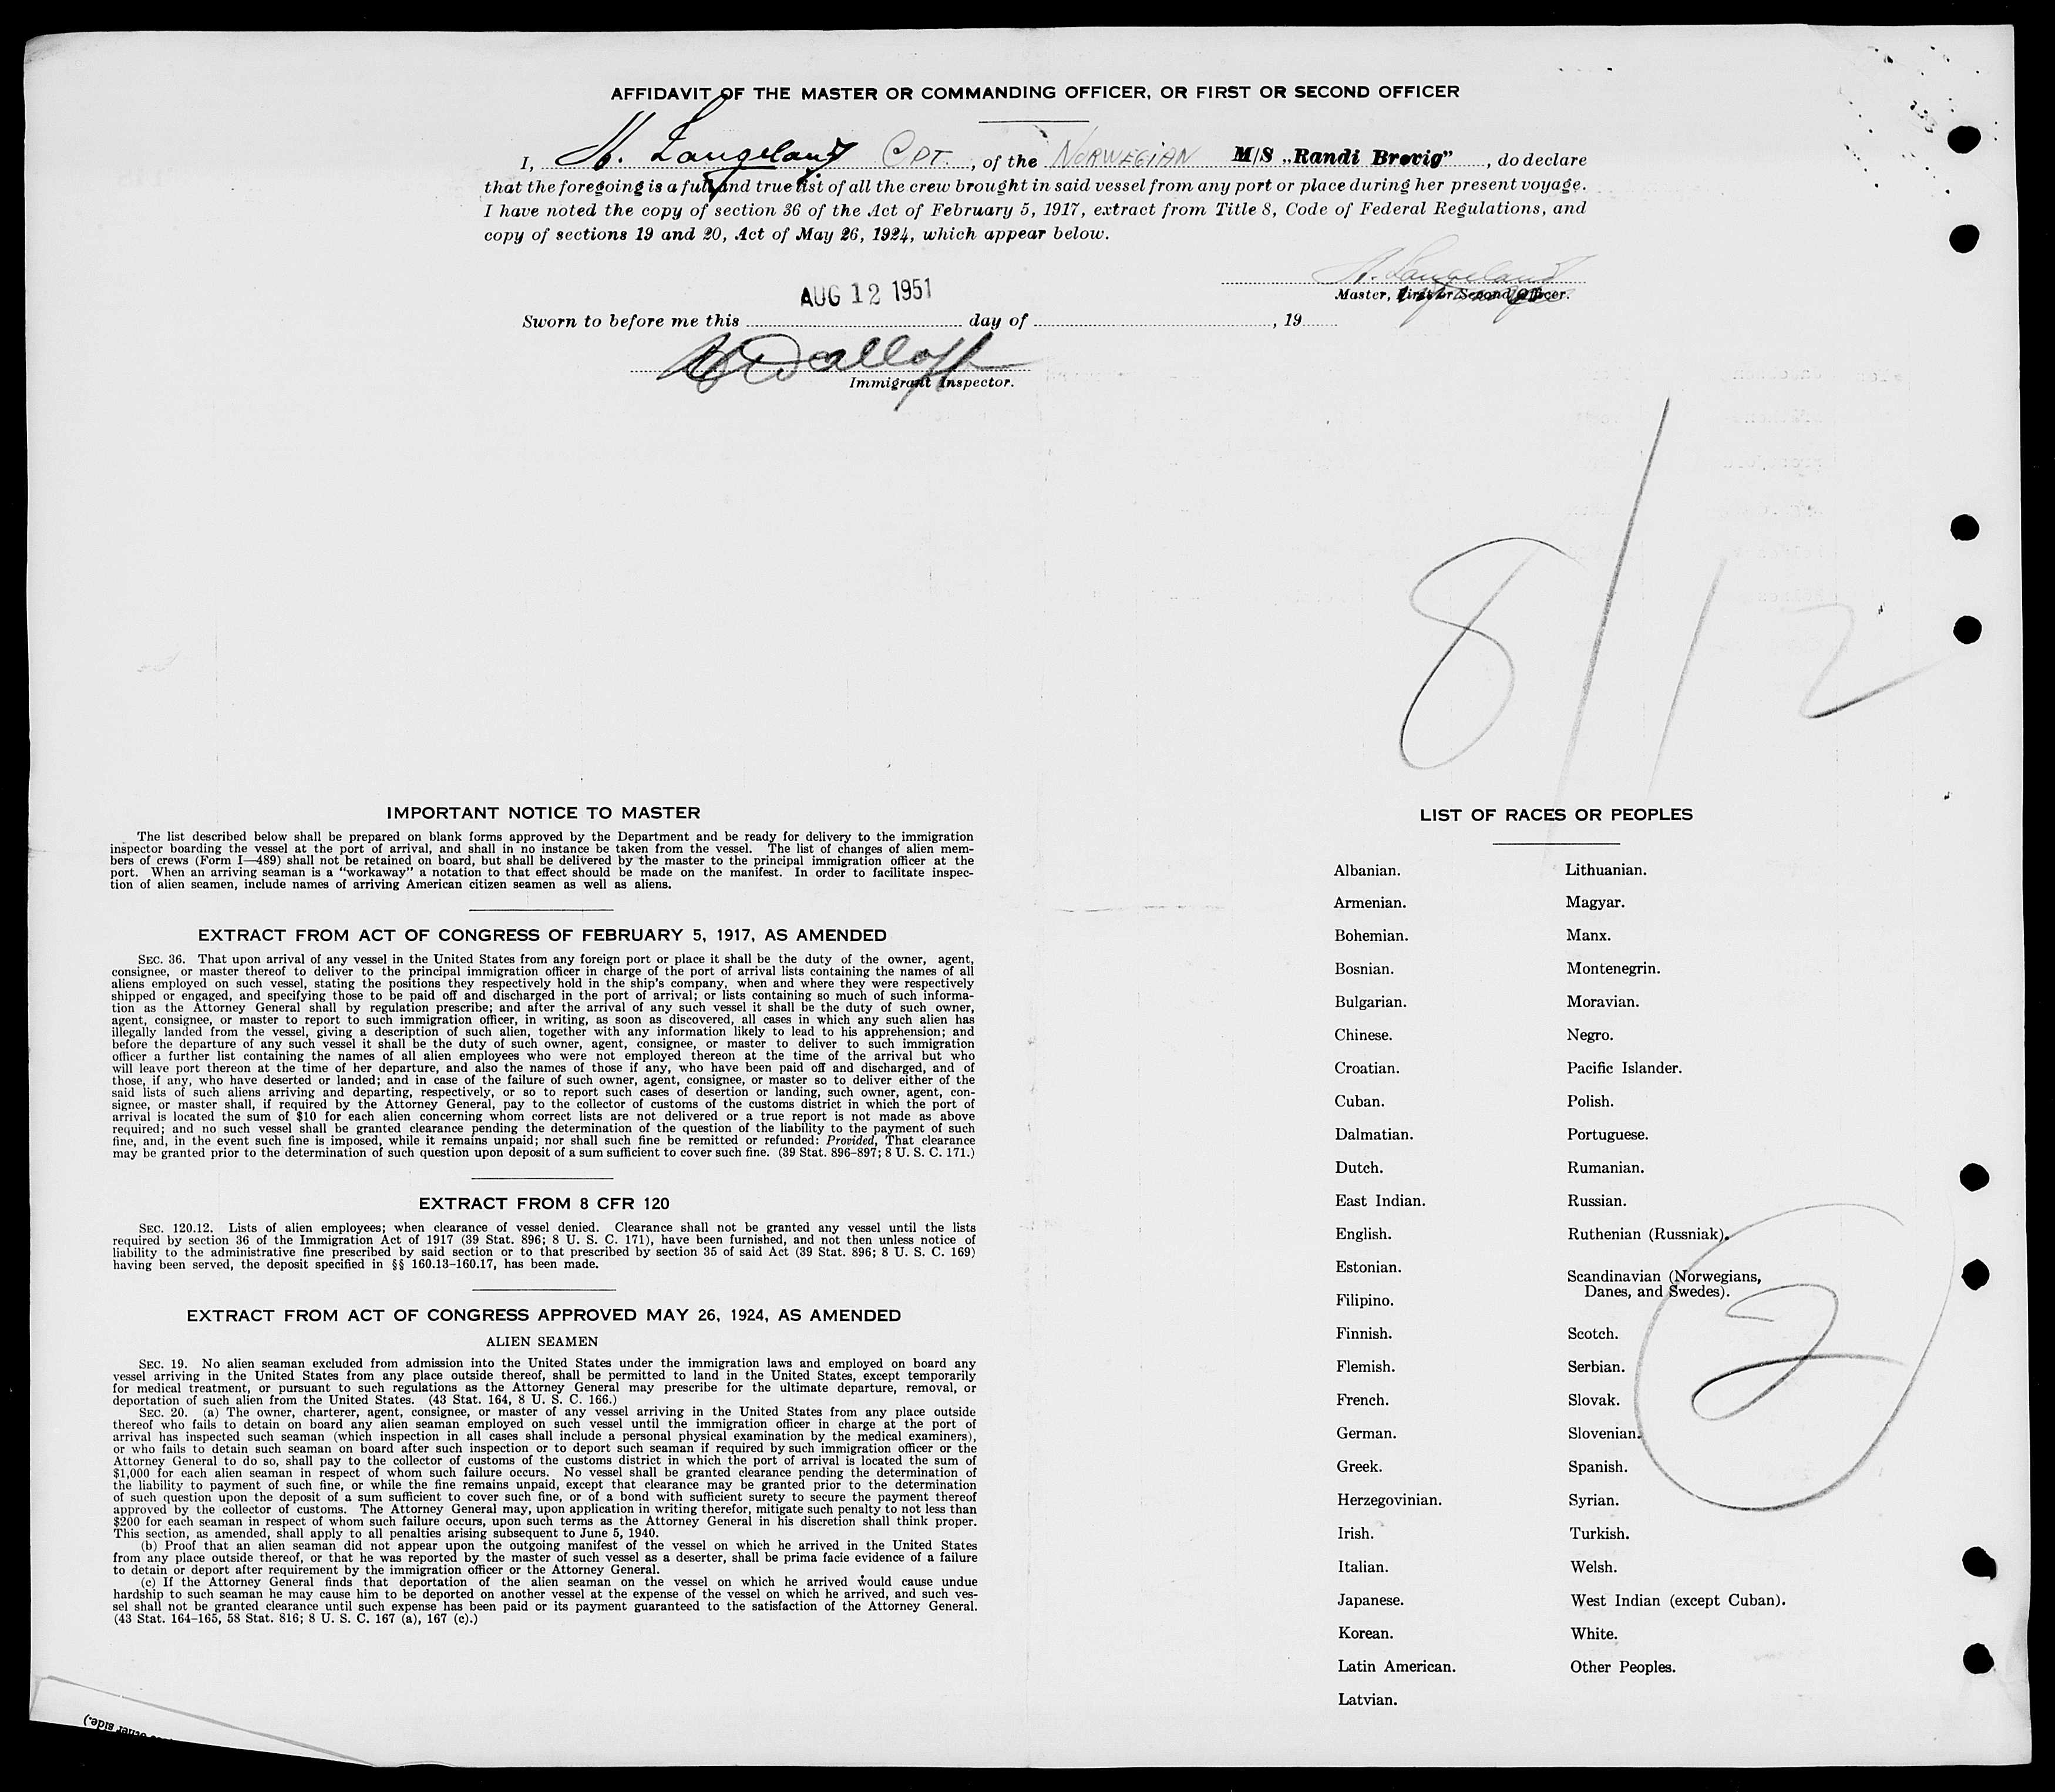 AFFIDAVIT OF THE MASTER OR COMMANDING OFFICER, OR FIRST OR SECOND OFFICER
I, H. Langeland Cpt. , of the NORWEGIAN M/S „Randi Brøvig” , do declare
that the foregoing is a full and true list of all the crew brought in said vessel from any port or place during her present voyage.
I have noted the copy of section 36 of the Act of February 5, 1917, extract from Title 8, Code of Federal Regulations, and
copy of sections 19 and 20, Act of May 26, 1924, which appear below.
H. Langeland
Master, First or Second Officer.
AUG 12 1951
Sworn to before me this day of , 19
Immigrant Inspector.
8/12
IMPORTANT NOTICE TO MASTER
The list described below shall be prepared on blank forms approved by the Department and be ready for delivery to the immigration
inspector boarding the vessel at the port of arrival, and shall in no instance be taken from the vessel. The list of changes of alien mem-
bers of crews (Form I—489) shall not be retained on board, but shall be delivered by the master to the principal immigration officer at the
port. When an arriving seaman is a “workaway” a notation to that effect should be made on the manifest. In order to facilitate inspec-
tion of alien seamen, include names of arriving American citizen seamen as well as aliens.
EXTRACT FROM ACT OF CONGRESS OF FEBRUARY 5, 1917, AS AMENDED
SEC. 36. That upon arrival of any vessel in the United States from any foreign port or place it shall be the duty of the owner, agent,
consignee, or master thereof to deliver to the principal immigration officer in charge of the port of arrival lists containing the names of all
aliens employed on such vessel, stating the positions they respectively hold in the ship's company, when and where they were respectively
shipped or engaged, and specifying those to be paid off and discharged in the port of arrival; or lists containing so much of such informa-
tion as the Attorney General shall by regulation prescribe; and after the arrival of any such vessel it shall be the duty of such owner,
agent, consignee, or master to report to such immigration officer, in writing, as soon as discovered, all cases in which any such alien has
illegally landed from the vessel, giving a description of such alien, together with any information likely to lead to his apprehension; and
before the departure of any such vessel it shall be the duty of such owner, agent, consignee, or master to deliver to such immigration
officer a further list containing the names of all alien employees who were not employed thereon at the time of the arrival but who
will leave port thereon at the time of her departure, and also the names of those if any, who have been paid off and discharged, and of
those, if any, who have deserted or landed; and in case of the failure of such owner, agent, consignee, or master so to deliver either of the
said lists of such aliens arriving and departing, respectively, or so to report such cases of desertion or landing, such owner, agent, con-
signee, or master shall, if required by the Attorney General, pay to the collector of customs of the customs district in which the port of
arrival is located the sum of $10 for each alien concerning whom correct lists are not delivered or a true report is not made as above
required; and no such vessel shall be granted clearance pending the determination of the question of the liability to the payment of such
fine, and, in the event such fine is imposed, while it remains unpaid; nor shall such fine be remitted or refunded: Provided, That clearance
may be granted prior to the determination of such question upon deposit of a sum sufficient to cover such fine. (39 Stat. 896–897; 8 U. S. C. 171.)
EXTRACT FROM 8 CFR 120
SEC. 120.12. Lists of alien employees; when clearance of vessel denied. Clearance shall not be granted any vessel until the lists
required by section 36 of the Immigration Act of 1917 (39 Stat. 896; 8 U. S. C. 171), have been furnished, and not then unless notice of
liability to the administrative fine prescribed by said section or to that prescribed by section 35 of said Act (39 Stat. 896; 8 U. S. C. 169)
having been served, the deposit specified in §§ 160.13–160.17, has been made.
EXTRACT FROM ACT OF CONGRESS APPROVED MAY 26, 1924, AS AMENDED
ALIEN SEAMEN
SEC. 19. No alien seaman excluded from admission into the United States under the immigration laws and employed on board any
vessel arriving in the United States from any place outside thereof, shall be permitted to land in the United States, except temporarily
for medical treatment, or pursuant to such regulations as the Attorney General may prescribe for the ultimate departure, removal, or
deportation of such alien from the United States. (43 Stat. 164, 8 U. S. C. 166.)
SEC. 20. (a) The owner, charterer, agent, consignee, or master of any vessel arriving in the United States from any place outside
thereof who fails to detain on board any alien seaman employed on such vessel until the immigration officer in charge at the port of
arrival has inspected such seaman (which inspection in all cases shall include a personal physical examination by the medical examiners),
or who fails to detain such seaman on board after such inspection or to deport such seaman if required by such immigration officer or the
Attorney General to do so, shall pay to the collector of customs of the customs district in which the port of arrival is located the sum of
$1,000 for each alien seaman in respect of whom such failure occurs. No vessel shall be granted clearance pending the determination of
the liability to payment of such fine, or while the fine remains unpaid, except that clearance may be granted prior to the determination
of such question upon the deposit of a sum sufficient to cover such fine, or of a bond with sufficient surety to secure the payment thereof
approved by the collector of customs. The Attorney General may, upon application in writing therefor, mitigate such penalty to not less than
$200 for each seaman in respect of whom such failure occurs, upon such terms as the Attorney General in his discretion shall think proper.
This section, as amended, shall apply to all penalties arising subsequent to June 5, 1940.
(b) Proof that an alien seaman did not appear upon the outgoing manifest of the vessel on which he arrived in the United States
from any place outside thereof, or that he was reported by the master of such vessel as a deserter, shall be prima facie evidence of a failure
to detain or deport after requirement by the immigration officer or the Attorney General.
(c) If the Attorney General finds that deportation of the alien seaman on the vessel on which he arrived would cause undue
hardship to such seaman he may cause him to be deported on another vessel at the expense of the vessel on which he arrived, and such ves-
sel shall not be granted clearance until such expense has been paid or its payment guaranteed to the satisfaction of the Attorney General.
(43 Stat. 164–165, 58 Stat. 816; 8 U. S. C. 167 (a), 167 (c).)
LIST OF RACES OR PEOPLES
Albanian.
Armenian.
Bohemian.
Bosnian.
Bulgarian.
Chinese.
Croatian.
Cuban.
Dalmatian.
Dutch.
East Indian.
English.
Estonian.
Filipino.
Finnish.
Flemish.
French.
German.
Greek.
Herzegovinian.
Irish.
Italian.
Japanese.
Korean.
Latin American.
Latvian.
Lithuanian.
Magyar.
Manx.
Montenegrin.
Moravian.
Negro.
Pacific Islander.
Polish.
Portuguese.
Rumanian.
Russian.
Ruthenian (Russniak).
Scandinavian (Norwegians,
Danes, and Swedes).
Scotch.
Serbian.
Slovak.
Slovenian.
Spanish.
Syrian.
Turkish.
Welsh.
West Indian (except Cuban).
White.
Other Peoples.
2
other side.)